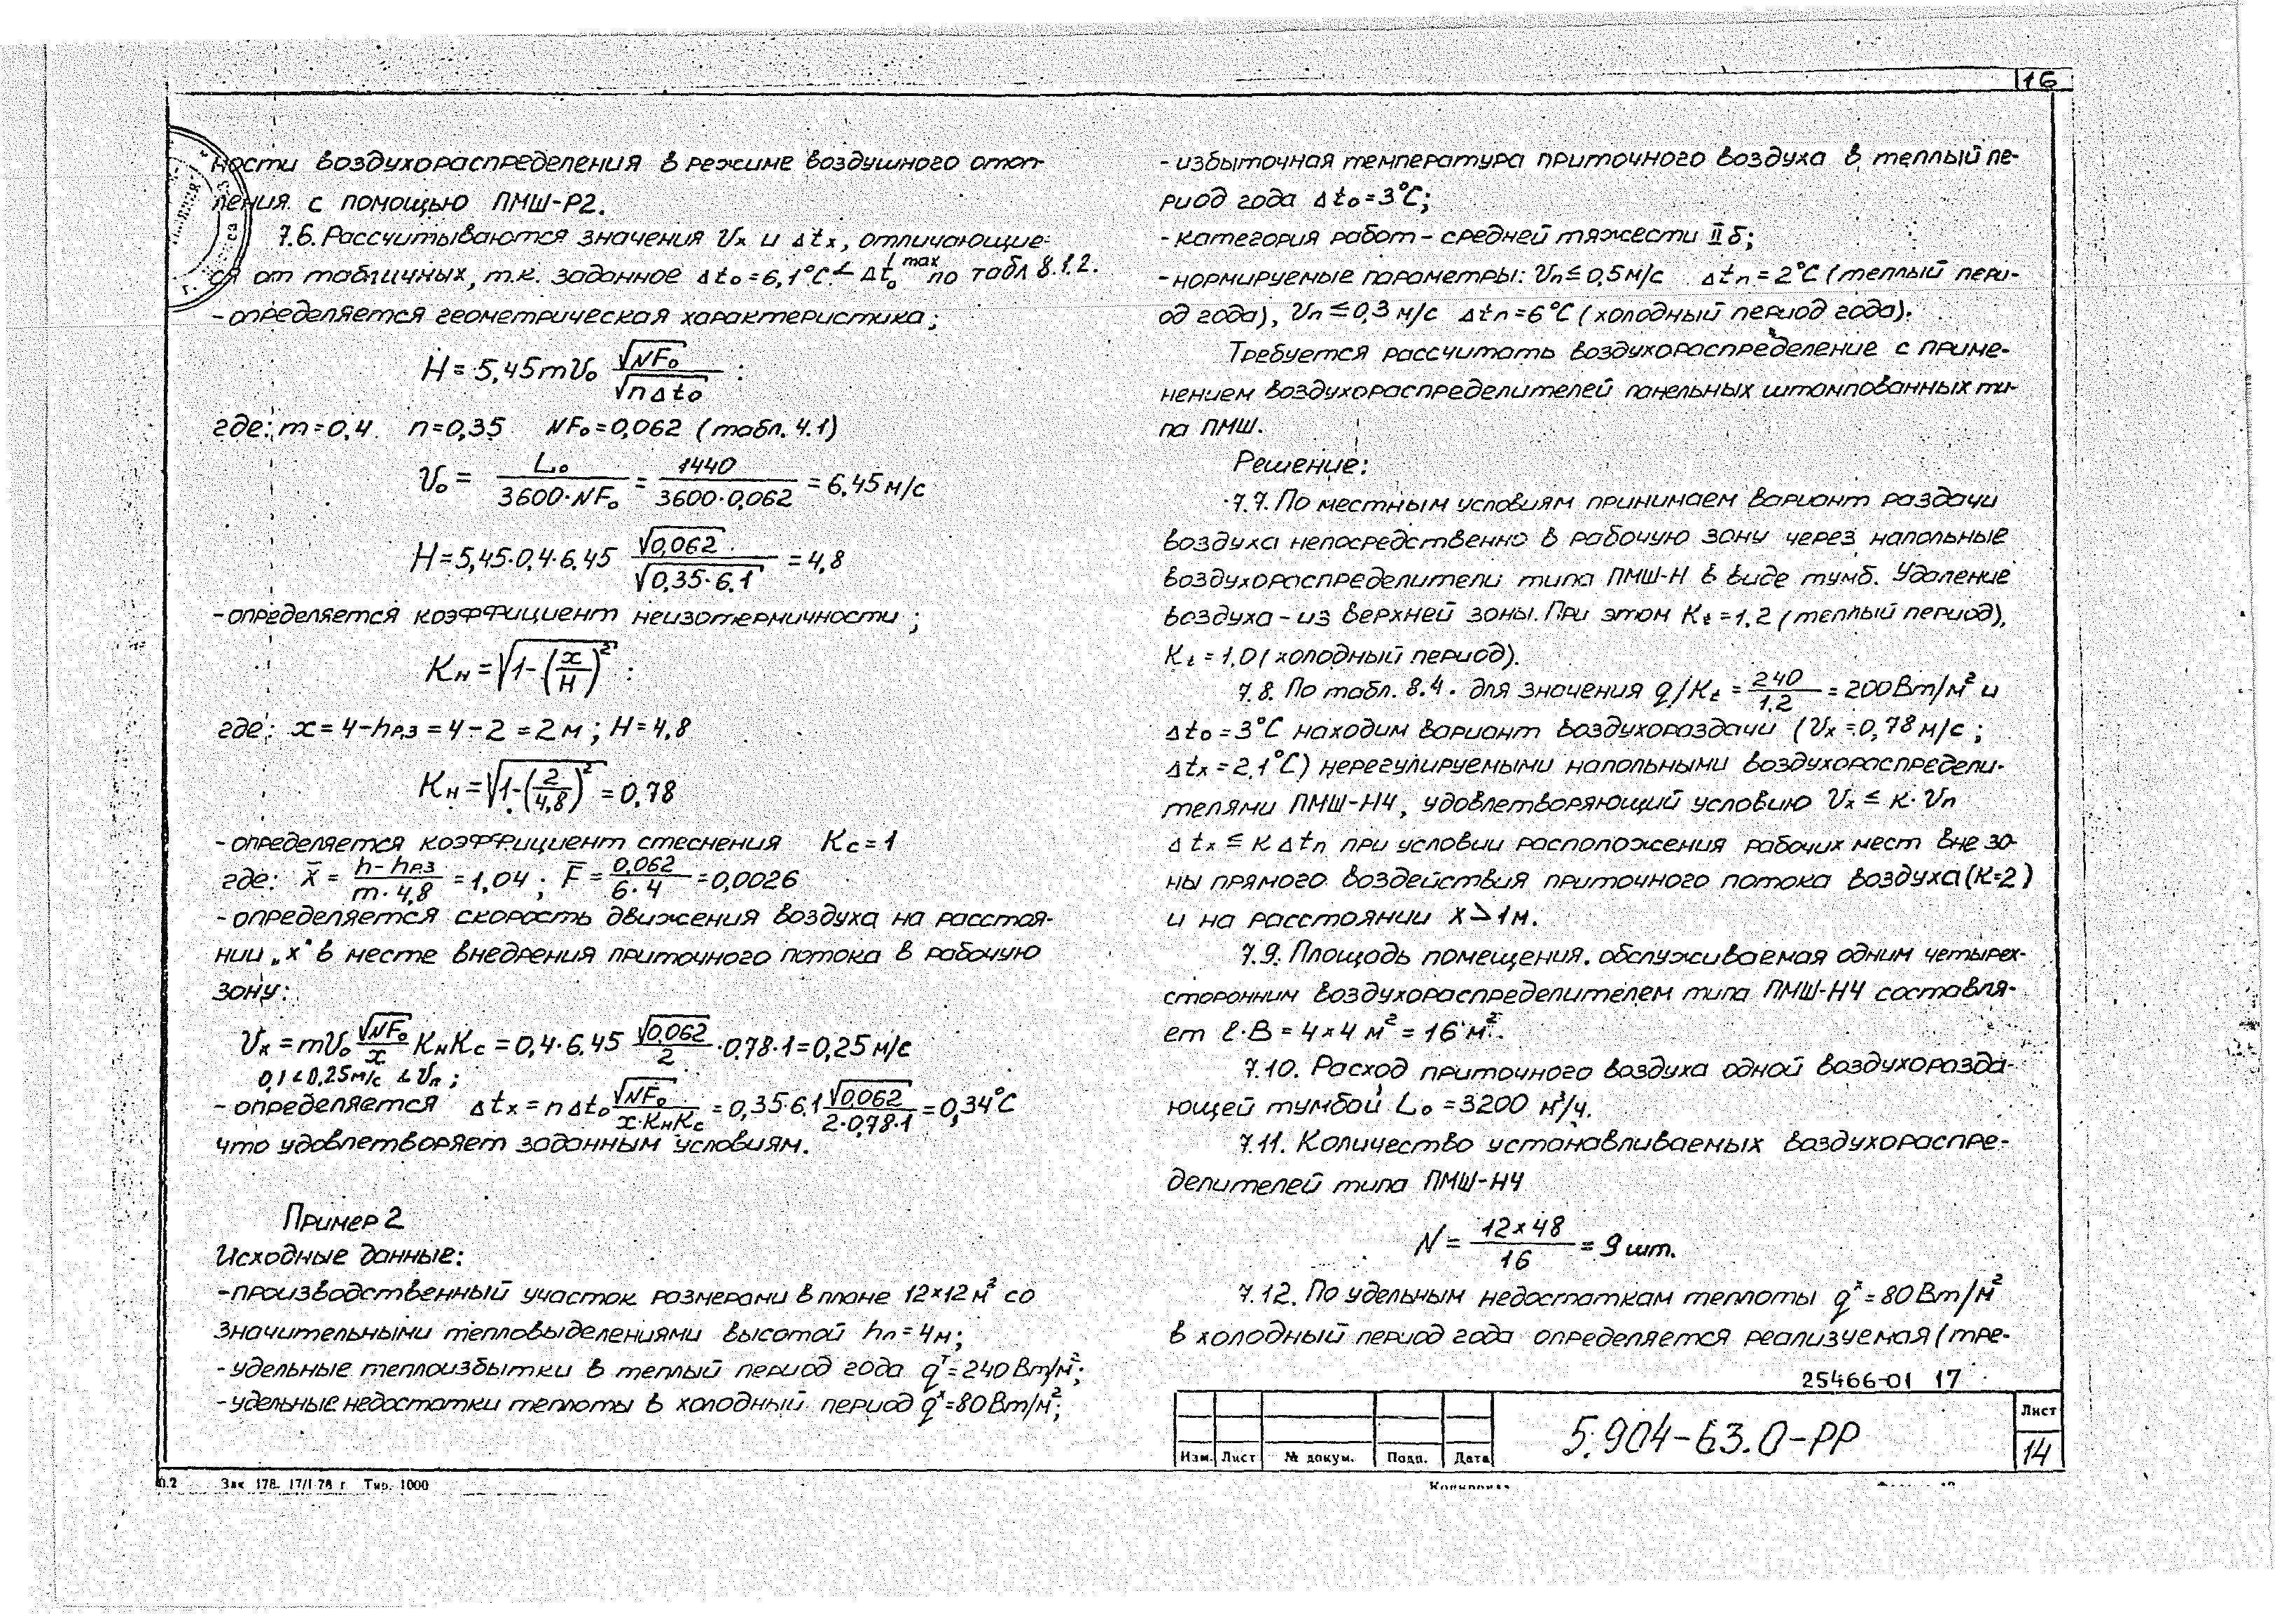 16
ности воздухораспределения в режиме воздушного отоп-
ления с помощью ПМШ-Р2.
7.6. Рассчитываются значения Vx и Δtx, отличающие-
ся от табличных, т.к. заданное Δto=6,1°C < Δto max по табл 8.1.2.
-определяется геометрическая характеристика;
H = 5,45 m Vo √NFo / √nΔto :
где: m=0,4 n=0,35 NFo=0,062 (табл. 4.1)
Vo = Lo / 3600·NFo = 1440 / 3600·0,062 = 6,45 м/с
H=5,45·0,4·6,45 √0,062 / √0,35·6,1 = 4,8
-определяется коэффициент неизотермичности;
Kн = √1-(x/H)² :
где: x = 4-hр.з = 4-2 = 2 м ; H=4,8
Kн = √1-(2/4,8)² = 0,78
-определяется коэффициент стеснения Kс=1
где: x̄ = h-hрз / m·4,8 = 1,04 ; F̄ = 0,062 / 6·4 = 0,0026
-определяется скорость движения воздуха на расстоя-
нии „x" в месте внедрения приточного потока в рабочую
зону:
Vx = mVo √NFo / x KнKс = 0,4·6,45 √0,062 / 2 ·0,78·1=0,25 м/с
0,1<0,25м/с < Vп ;
-определяется Δtx = nΔto √NFo / x·KнKс = 0,35·6,1 √0,062 / 2·0,78·1 = 0,34°C
что удовлетворяет заданным условиям.
Пример 2
Исходные данные:
-производственный участок размерами в плане 12×12 м² со
значительными тепловыделениями высотой hп=4м;
-удельные теплоизбытки в теплый период года qᵀ=240 Вт/м²;
-удельные недостатки теплоты в холодный период qˣ=80 Вт/м²;
-избыточная температура приточного воздуха в теплый пе-
риод года Δto=3°C;
-категория работ-средней тяжести II б;
-нормируемые параметры: Vп≤0,5м/с Δtп=2°C (теплый пери-
од года), Vп≤0,3 м/с Δtп=6°C (холодный период года).
Требуется рассчитать воздухораспределение с приме-
нением воздухораспределителей панельных штампованных ти-
па ПМШ.
Решение:
7.7. По местным условиям принимаем вариант раздачи
воздуха непосредственно в рабочую зону через напольные
воздухораспределители типа ПМШ-Н в виде тумб. Удаление
воздуха-из верхней зоны. При этом Kt=1,2 (теплый период),
Kt=1,0 (холодный период).
7.8. По табл. 8.4. для значения q/Kt = 240 / 1,2 = 200 Вт/м² и
Δto=3°C находим вариант воздухораздачи (Vx=0,78 м/с ;
Δtx=2,1°C) нерегулируемыми напольными воздухораспредели-
телями ПМШ-Н4, удовлетворяющий условию Vx ≤ к·Vп
Δtx ≤ кΔtп при условии расположения рабочих мест вне зо-
ны прямого воздействия приточного потока воздуха (К=2)
и на расстоянии x>1м.
7.9. Площадь помещения, обслуживаемая одним четырех-
сторонним воздухораспределителем типа ПМШ-Н4 составля-
ет l·B = 4×4 м² = 16 м².
7.10. Расход приточного воздуха одной воздухоразда-
ющей тумбой Lo=3200 м³/ч.
7.11. Количество устанавливаемых воздухораспре-
делителей типа ПМШ-Н4
N = 12×48 / 16 = 9 шт.
7.12. По удельным недостаткам теплоты qˣ=80 Вт/м²
в холодный период года определяется реализуемая (тре-
25466-01 17
Изм. Лист № докум. Подп. Дата
5.904-63.0-РР
Лист
14
Зак 178. 17/I-78 г. Тир. 1000